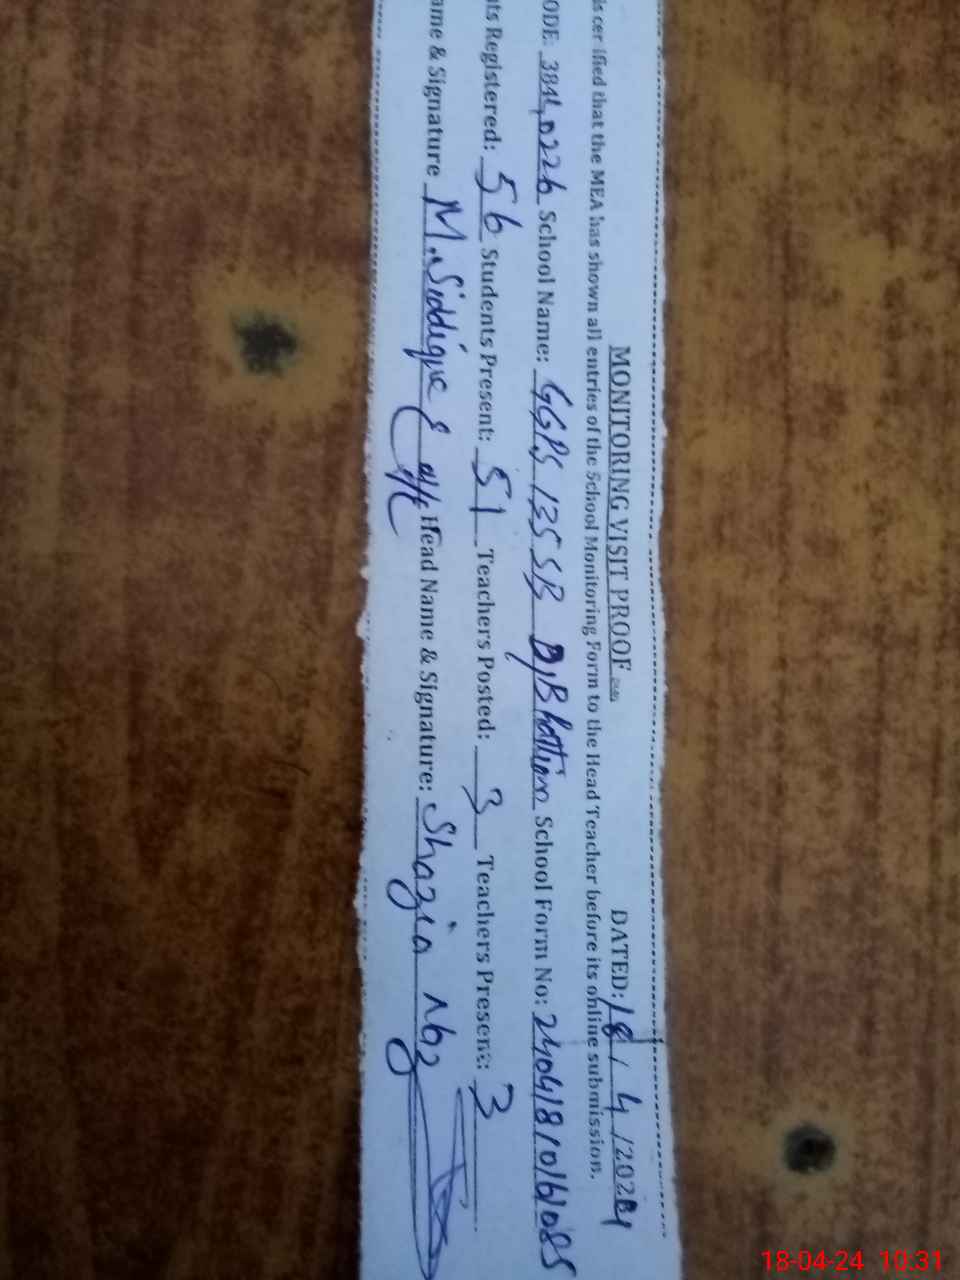 MONITORING VISIT PROOF DATED: 18 / 4 /2024
is cer ified that the MEA has shown all entries of the School Monitoring Form to the Head Teacher before its online submission.
ODE: 38440226 School Name: GGPS 125 SB D/Bhattian School Form No:
nts Registered: 56 Students Present: 51 Teachers Posted: 3 Teachers Present: 3
ame & Signature M. Siddique Head Name & Signature: Shazia
18-04-24 10:31